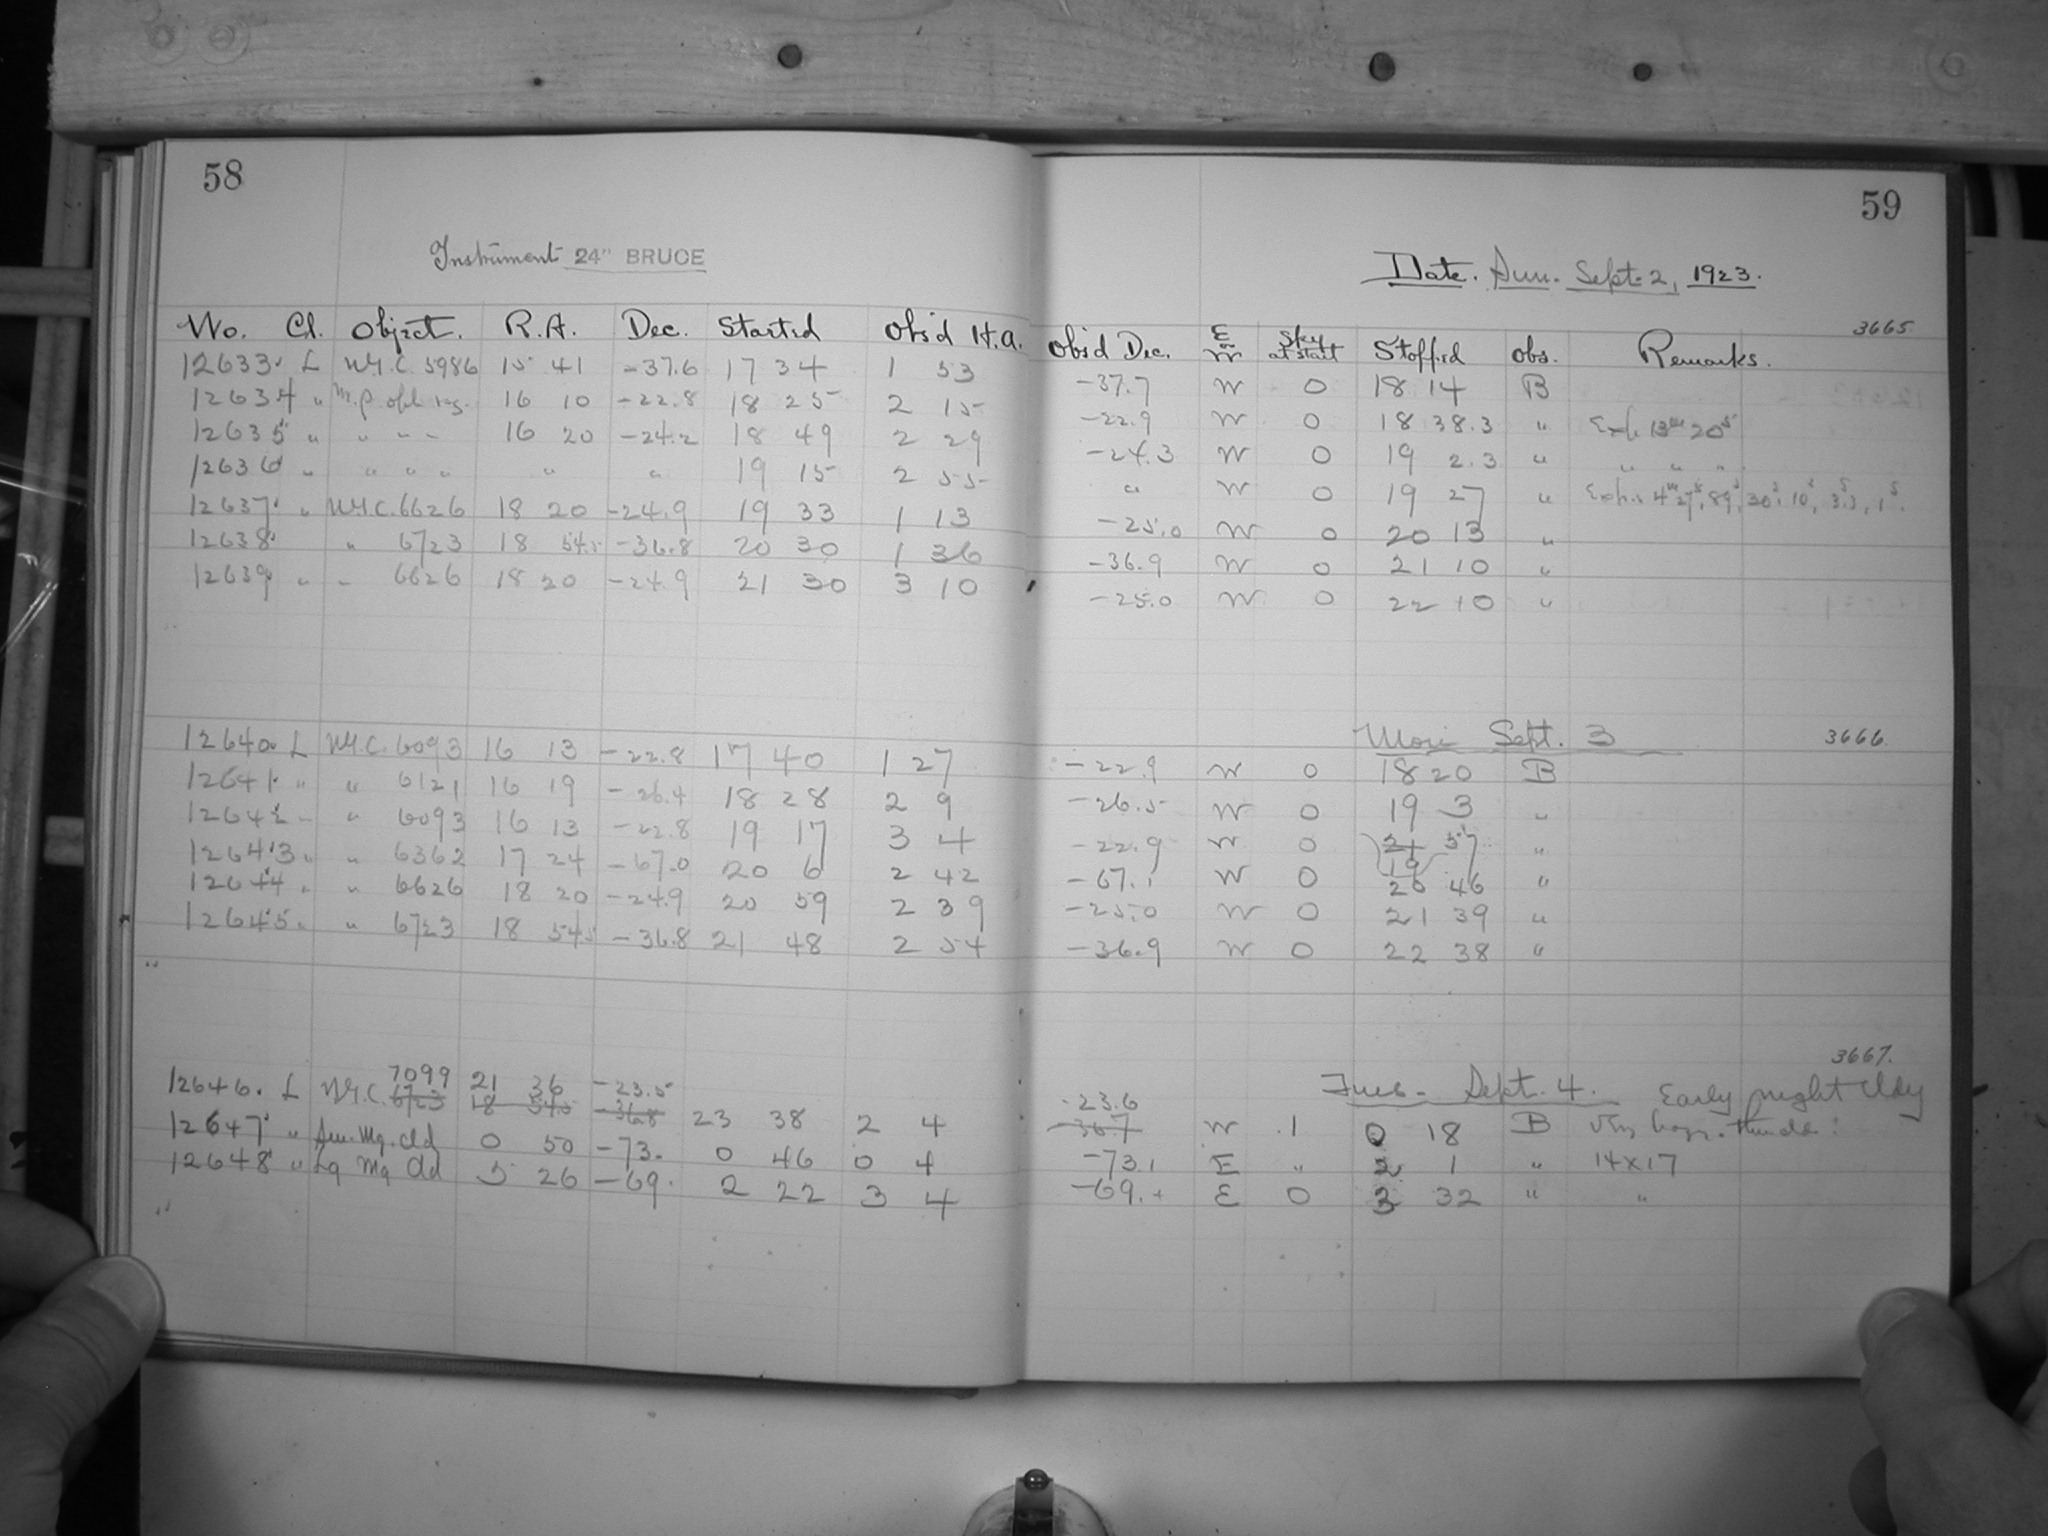 58
59
Instrument 24" BRUCE
Date. Sun. Sept. 2, 1923.
3665
No. Cl. Object. R.A. Dec. Started Obs'd H.A. Obs'd Dec. E or W Sky at start Stopped Obs. Remarks.
12633. L N.G.C. 5986 15 41 -37.6 17 34 1 53 -37.7 W 0 18 14 B
12634 " 16 10 -22.8 18 25 2 15 -22.9 W 0 18 38.3 " Exp. 13m 20s
12635 " " " " 16 20 -24.2 18 49 2 29 -24.3 W 0 19 2.3 " " " "
12636 " " " " " " 19 15 2 55 " W 0 19 27 " Exp.s 4m 27s, 89s, 30s, 10s, 3.3s, 1s.
12637. " N.G.C. 6626 18 20 -24.9 19 33 1 13 -25.0 W 0 20 13 "
12638. " 6723 18 54.5 -36.8 20 30 1 36 -36.9 W 0 21 10 "
12639 " " 6626 18 20 -24.9 21 30 3 10 -25.0 W 0 22 10 "
Mon Sept. 3 3666
12640. L N.G.C. 6093 16 13 -22.8 17 40 1 27 -22.9 W 0 18 20 B
12641. " " 6121 16 19 -26.4 18 28 2 9 -26.5 W 0 19 3 "
12642 " " 6093 16 13 -22.8 19 17 3 4 -22.9 W 0 21 57 "
19
12643 " " 6362 17 24 -67.0 20 6 2 42 -67.1 W 0 20 46 "
12644 " " 6626 18 20 -24.9 20 59 2 39 -25.0 W 0 21 39 "
12645. " " 6723 18 54.5 -36.8 21 48 2 54 -36.9 W 0 22 38 "
3667.
Tues. Sept. 4. Early night Cldy
7099 21 36 -23.5 -23.6
12646. L N.G.C. 6723 18 54.5 -36.8 23 38 2 4 -36.7 W 1 0 18 B Very hazy.
12647 " Sm. Mg. Cld 0 50 -73. 0 46 0 4 -73.1 E " 2 1 " 14x17
12648 " Lg Mg Cld 5 26 -69. 2 22 3 4 -69.+ E 0 3 32 " "